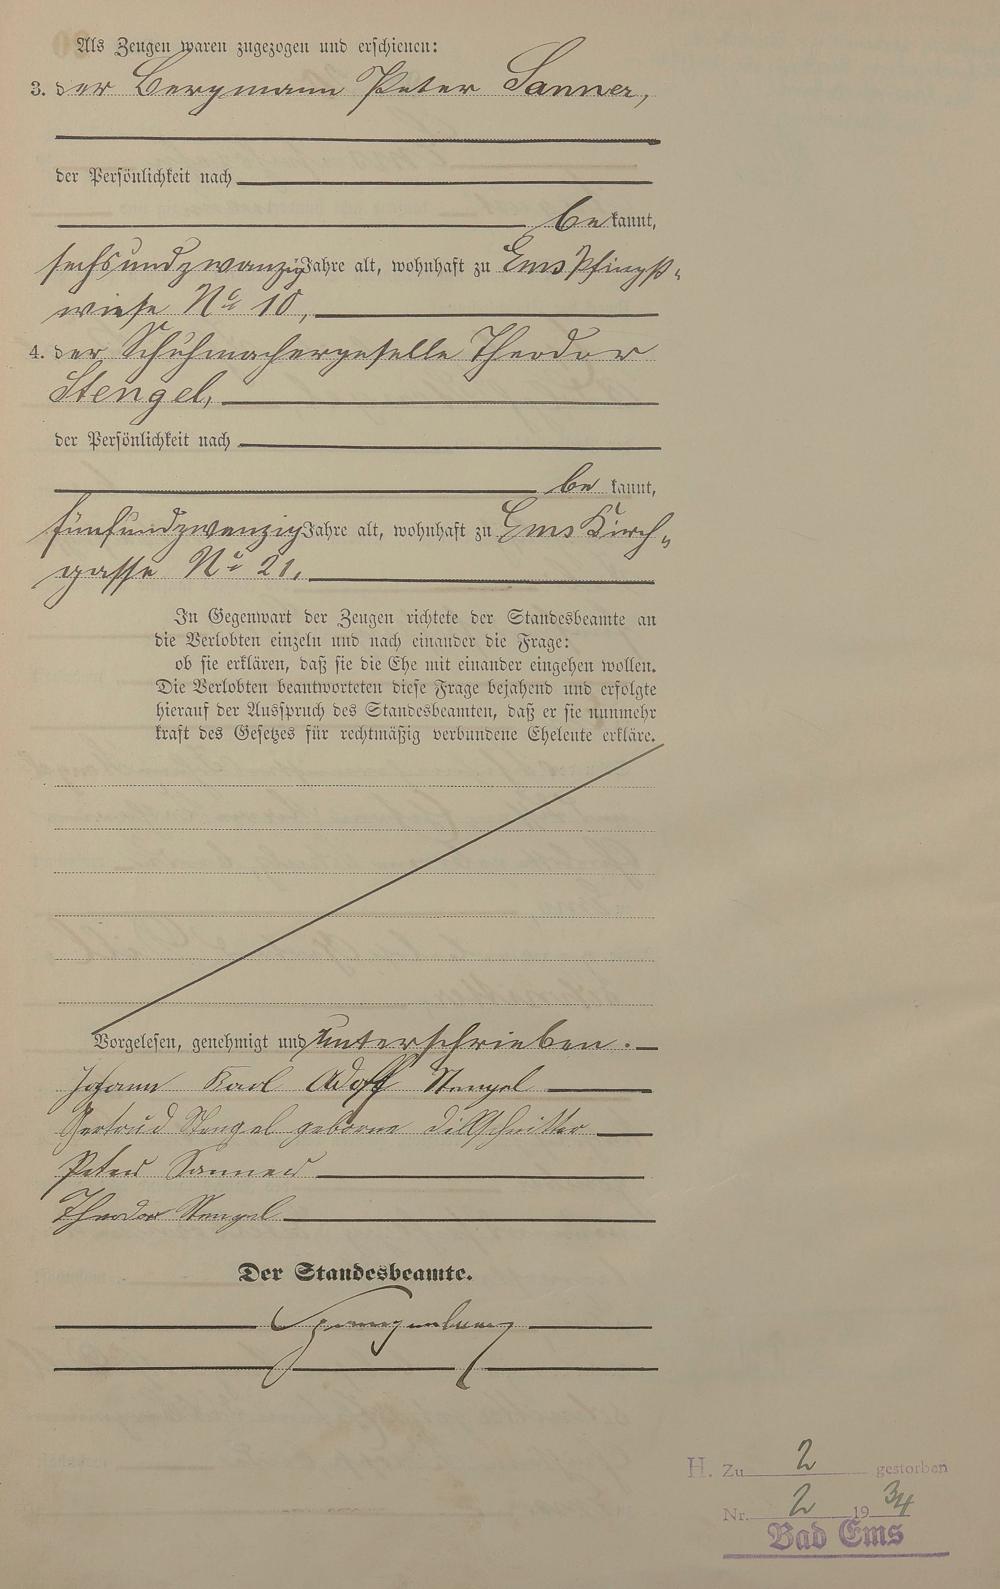 Als Zeugen waren zugezogen und erschienen:
3. der Bergmann Peter Sanner,
der Persönlichkeit nach
bekannt,
sechsundzwanzig Jahre alt, wohnhaft zu Ems Pfingst-
wiese No 10,
4. der Schuhmachergeselle Theodor
Stengel,
der Persönlichkeit nach
be kannt,
fünfundzwanzig Jahre alt, wohnhaft zu Ems Kirch-
gasse No 21.
In Gegenwart der Zeugen richtete der Standesbeamte an
die Verlobten einzeln und nach einander die Frage:
ob sie erklären, daß sie die Ehe mit einander eingehen wollen.
Die Verlobten beantworteten diese Frage bejahend und erfolgte
hierauf der Ausspruch des Standesbeamten, daß er sie nunmehr
kraft des Gesetzes für rechtmäßig verbundene Eheleute erkläre.
Vorgelesen, genehmigt und unterschrieben.
Johann Karl Adolf Stengel
Gertrud Stengel geborne Dillschnitter
Peter Sanner
Theodor Stengel
Der Standesbeamte.
H. Zu 2 gestorben
Nr. 2 1934
Bad Ems